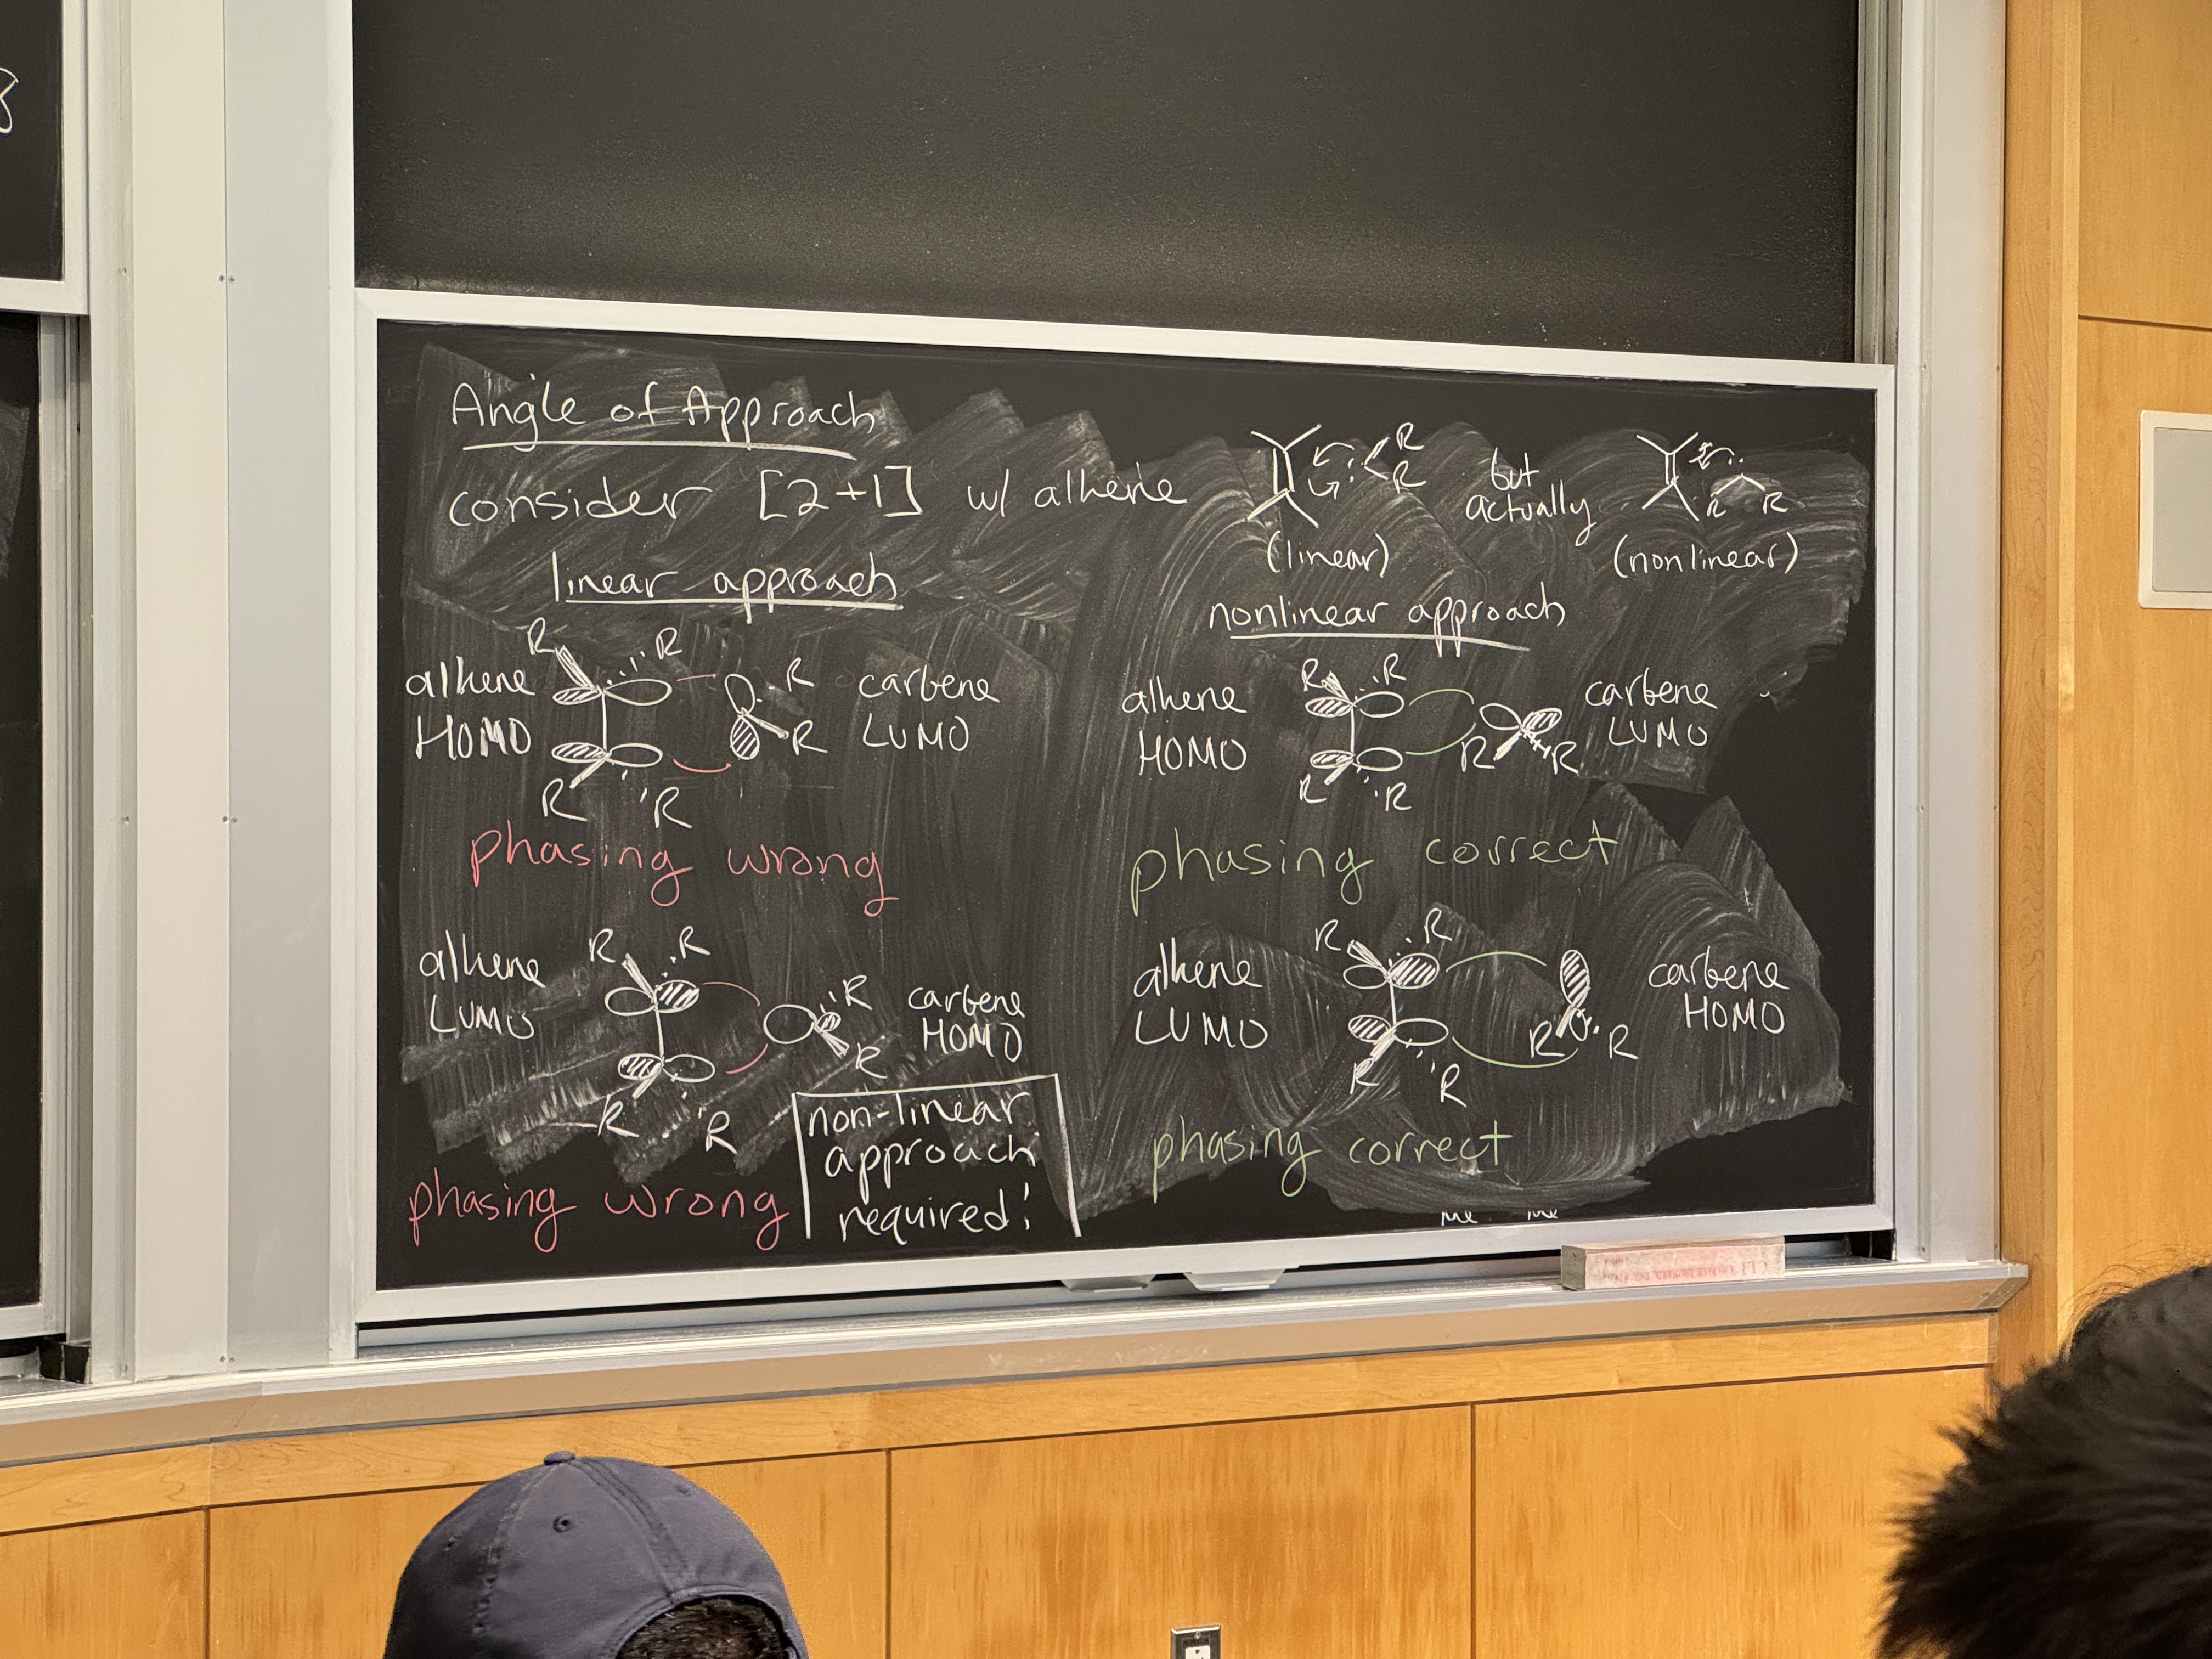 8
Angle of Approach
consider [2+1] w/ alkene
R
R
(linear)
but
actually
R R
(nonlinear)
linear approach
R R
alkene
HOMO
R
R
carbene
LUMO
R R
phasing wrong
alkene
LUMO
R R
R
R
carbene
HOMO
R R
phasing wrong
non-linear
approach
required!
nonlinear approach
R R
alkene
HOMO
R R
carbene
LUMO
R R
phasing correct
alkene
LUMO
R R
R R
carbene
HOMO
R R
phasing correct
Me Me